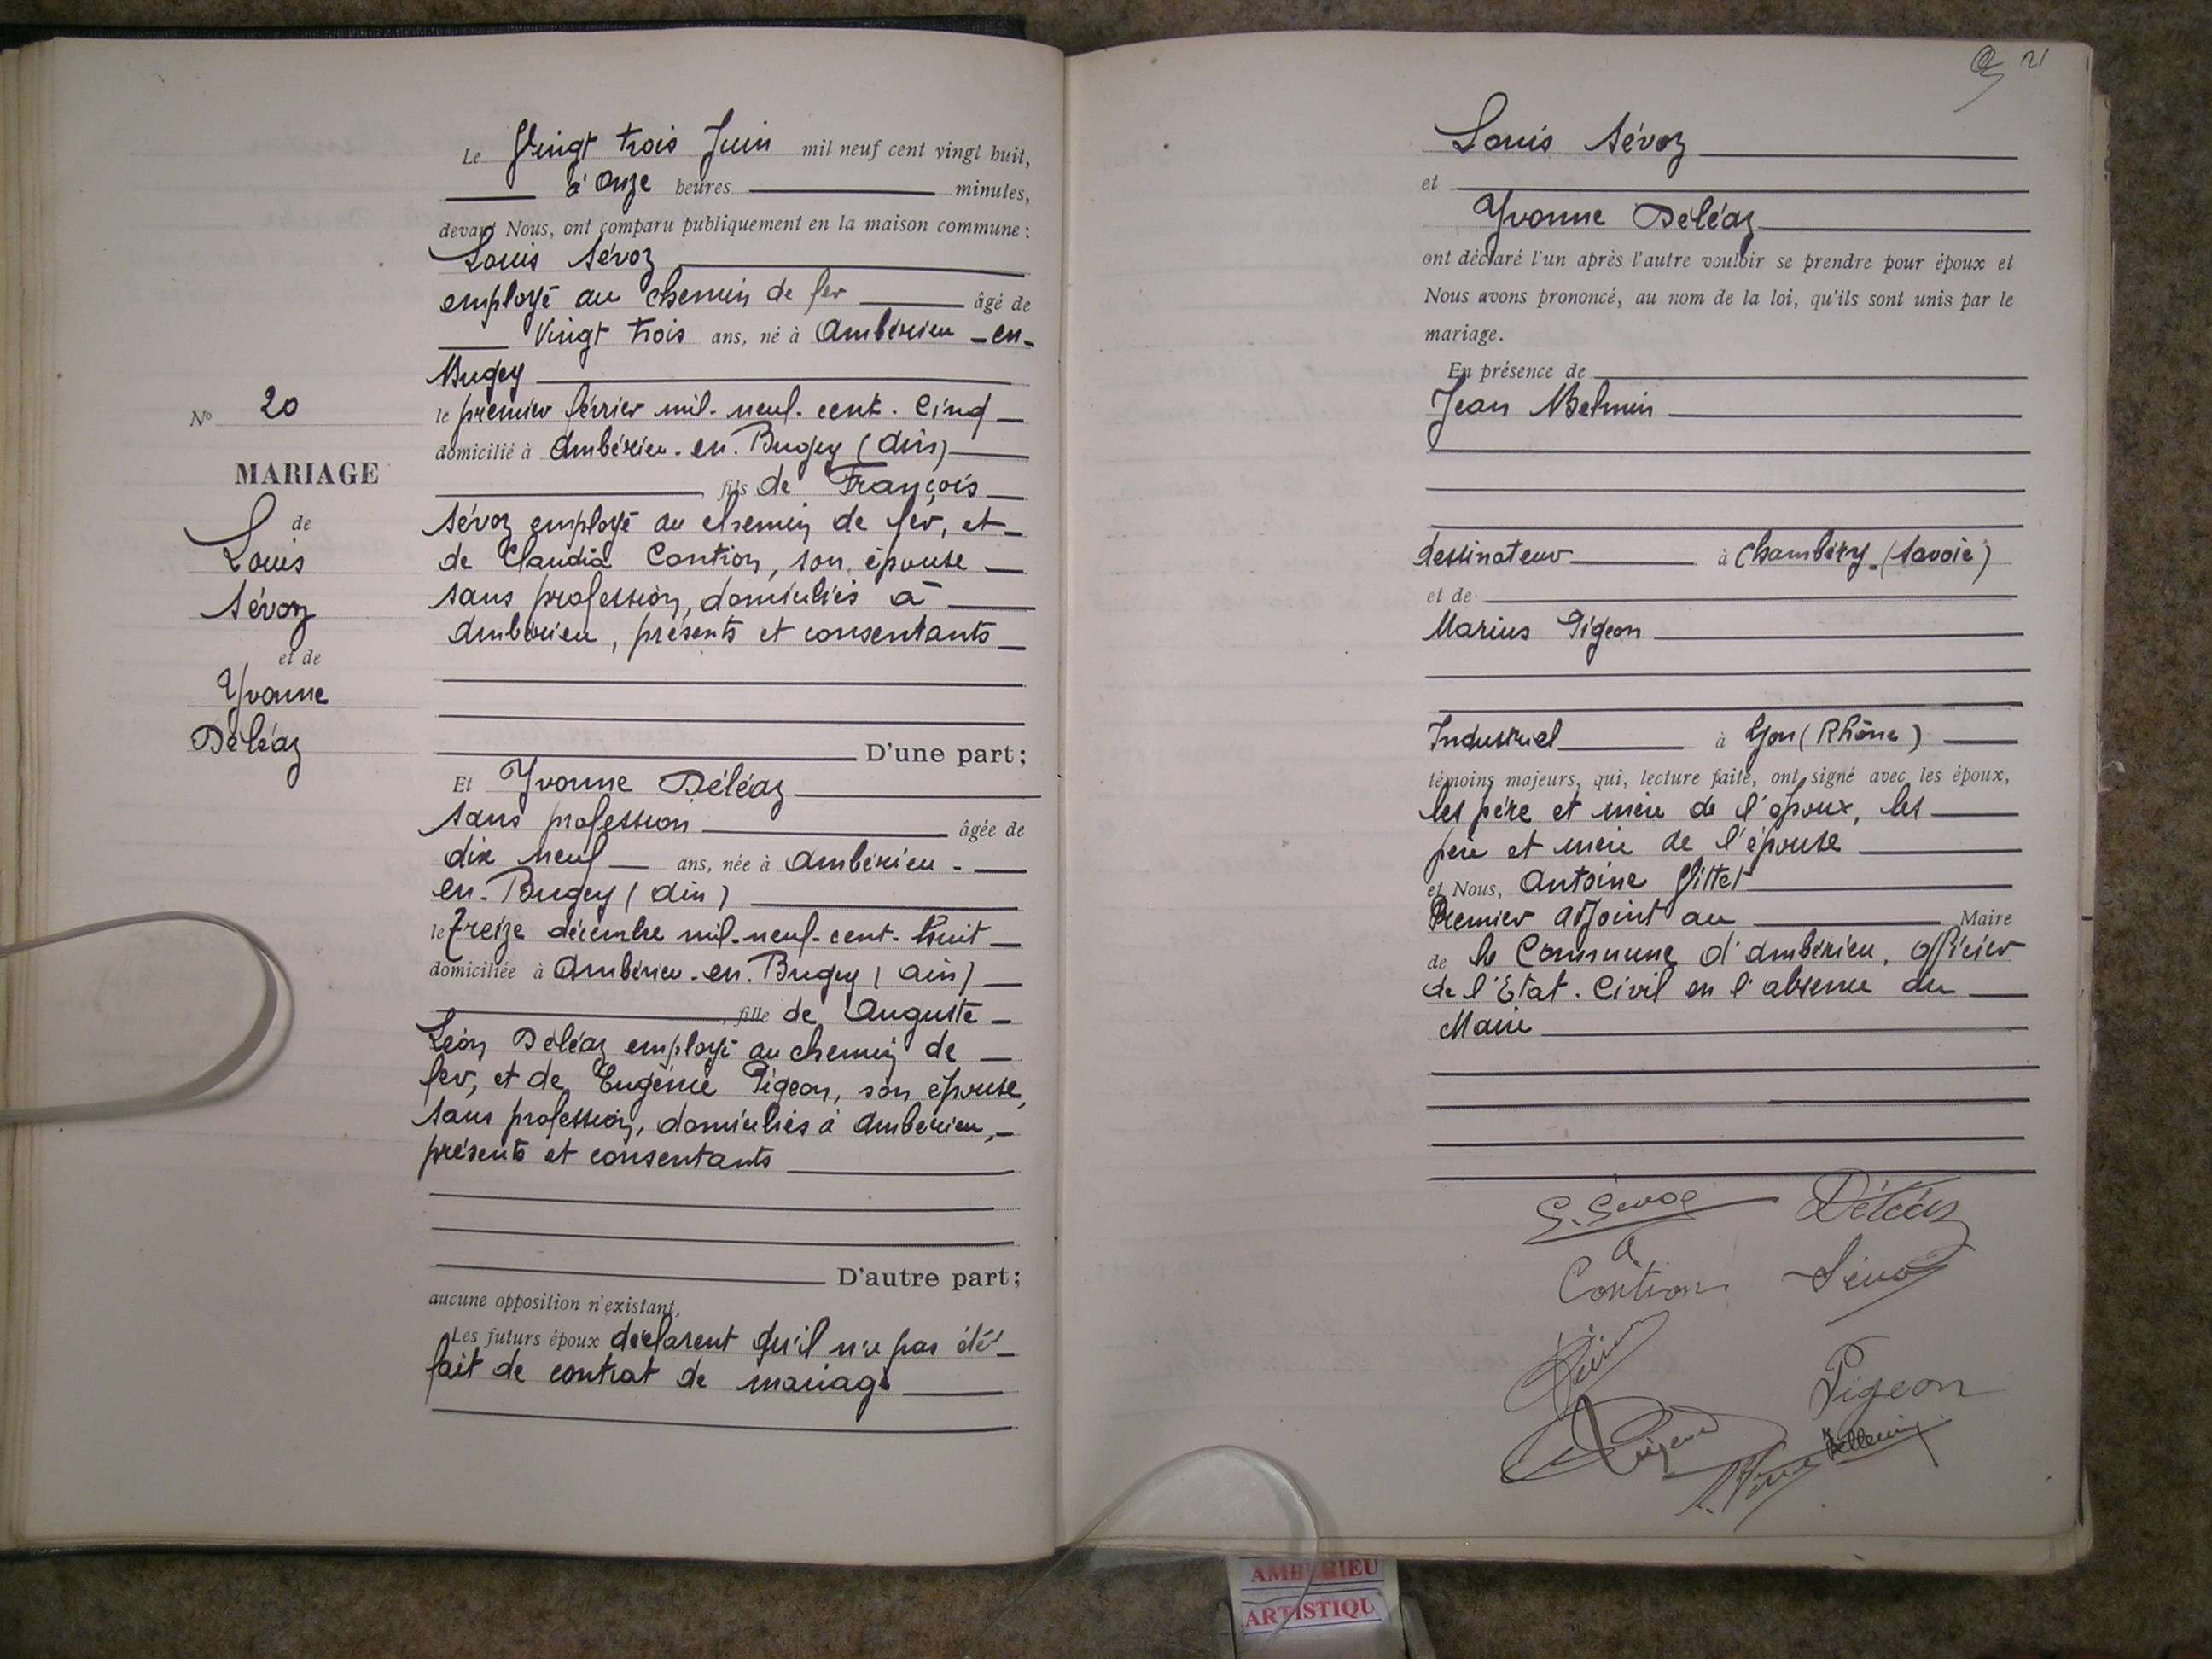 Le Vingt trois Juin mil neuf cent vingt huit,
à onze heures minutes,
devant Nous, ont comparu publiquement en la maison commune :
Louis Sévoz
employé au chemin de fer âgé de
Vingt trois ans, né à Ambérieu-en-
Bugey
le premier février mil-neuf-cent-cinq
domicilié à Ambérieu-en-Bugey (Ain)
fils de François
Sévoz employé au chemin de fer, et
de Claudia Contion, son épouse
sans profession, domiciliés à
Ambérieu, présents et consentants
D'une part;
Et Yvonne Déléaz
sans profession âgée de
dix neuf ans, née à Ambérieu-
en-Bugey (Ain)
le Treize décembre mil-neuf-cent-huit
domiciliée à Ambérieu-en-Bugey (Ain)
fille de Auguste
Léon Déléaz employé au chemin de
fer, et de Eugénie Pigeon, son épouse,
sans profession, domiciliés à Ambérieu,
présents et consentants
D'autre part;
aucune opposition n'existant,
Les futurs époux déclarent qu'il n'a pas été
fait de contrat de mariage
No 20
MARIAGE
de
Louis
Sévoz
et de
Yvonne
Déléaz
21
Louis Sévoz
et
Yvonne Déléaz
ont déclaré l'un après l'autre vouloir se prendre pour époux et
Nous avons prononcé, au nom de la loi, qu'ils sont unis par le
mariage.
En présence de
Jean
dessinateur à Chambéry (Savoie)
et de
Marius Pigeon
Industriel à Lyon (Rhône)
témoins majeurs, qui, lecture faite, ont signé avec les époux,
les père et mère de l'époux, les
père et mère de l'épouse
et Nous, Antoine Vittet
Premier adjoint au Maire
de la Commune d'Ambérieu, officier
de l'Etat-Civil en l'absence du
Maire
Déléaz
Contion
Pigeon
AMBERIEU
ARTISTIQU